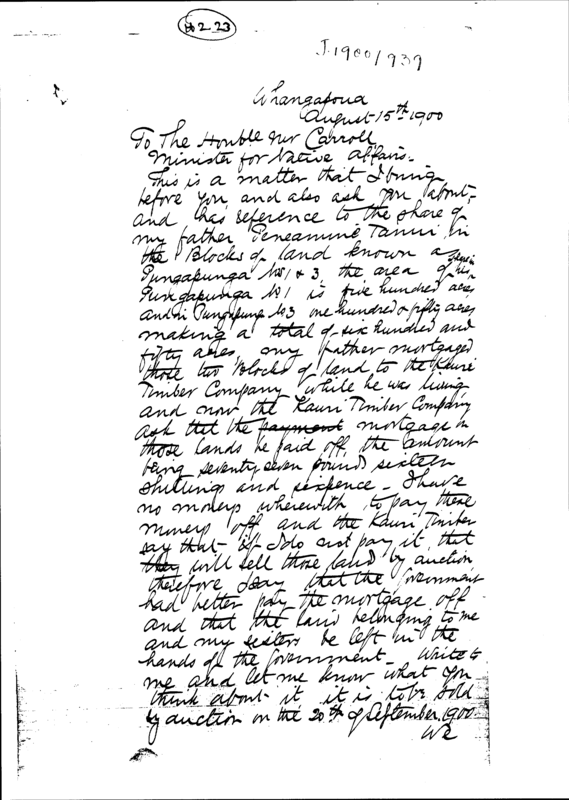 2.23
J.1900/939
Whangapoua
August 15th 1900
To The Honble Mr Carroll
Minister for Native Affairs.
This is a matter that I bring
before you, and also ask you about,
and has reference to the share of
my father Peneamine Tanui in
the Blocks of land known as
Pungapunga No 1 & 3, the area of his
Pungapunga No 1 is five hundred acres
and in Pungapunga No 3 one hundred & fifty acres
making a total of six hundred and
fifty acres, my father mortgaged
those two Blocks of land to the Kauri
Timber Company while he was living
and now the Kauri Timber Company
ask that the payment mortgage on
those lands be paid off, the amount
being seventy seven pounds sixteen
shillings and sixpence - I have
no moneys wherewith to pay these
moneys off and the Kauri Timber
say that if I do not pay it, that
they will sell those lands by auction
therefore I say that the Government
had better pay the mortgage off
and that the land belonging to me
and my sisters be left in the
hands of the Government - Write to
me and let me know what you
think about it it is to be sold
by auction on the 20th of September 1900.
We